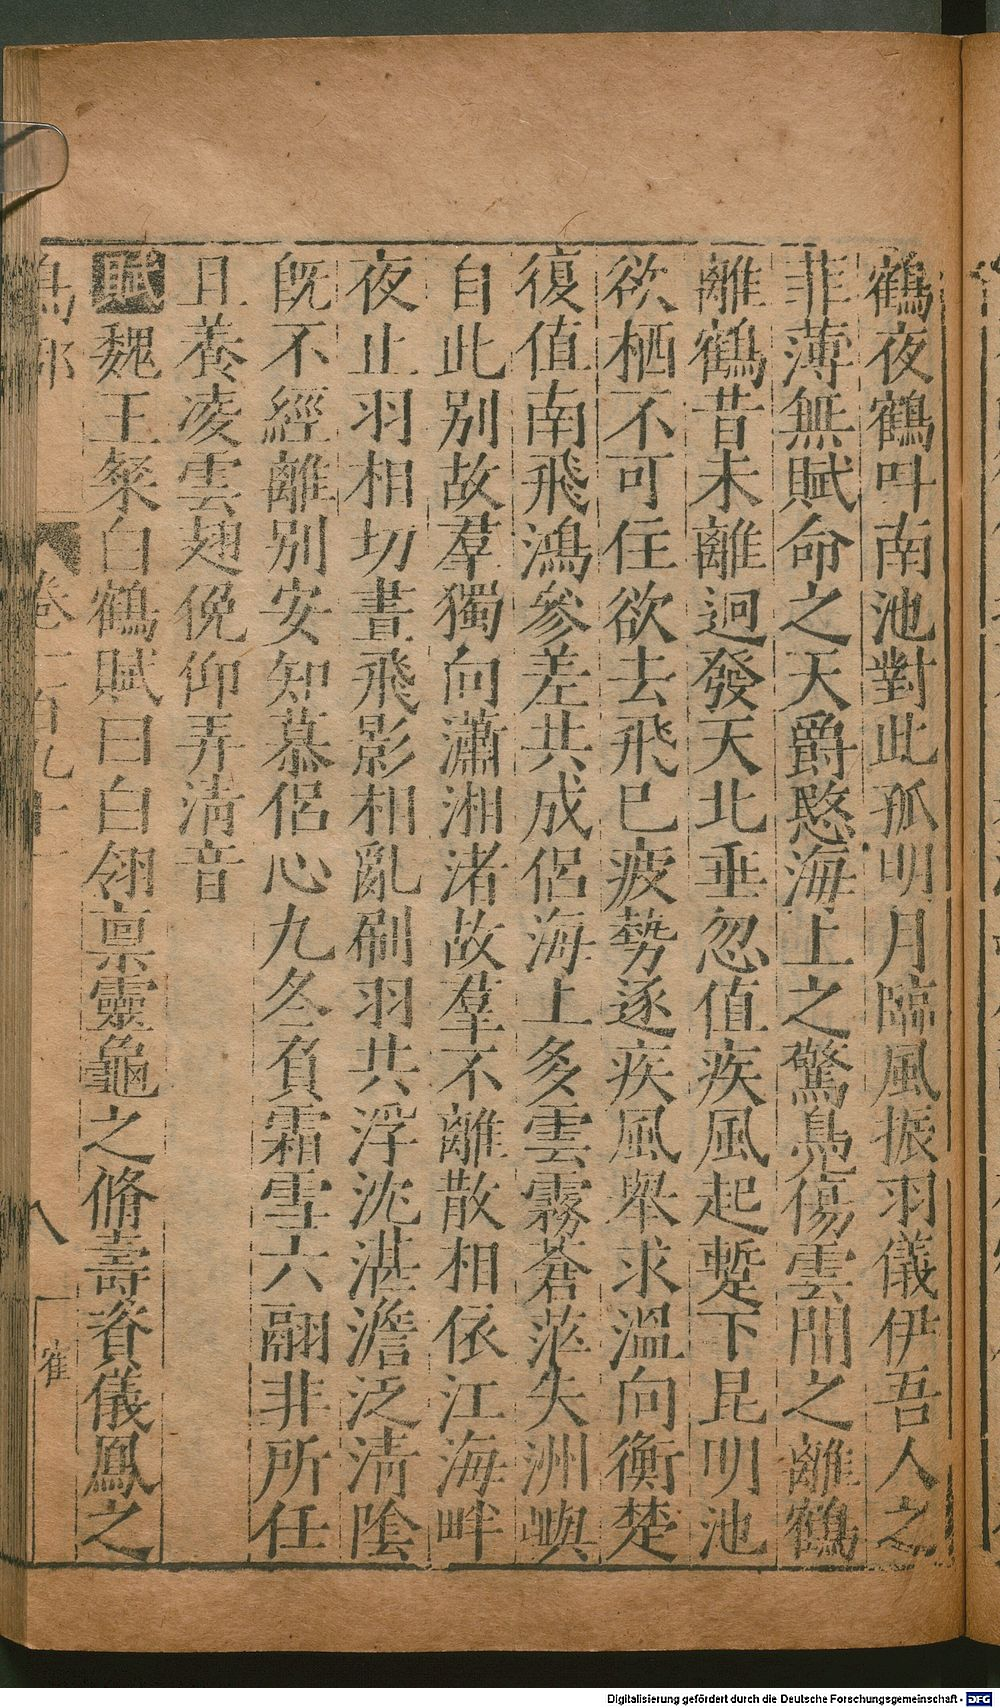 鶴夜鶴叫南池對此孤明月臨風振羽儀伊吾人之
菲薄無賦命之天爵愍海上之驚鳬傷雲間之離鶴
離鶴昔未離迥發天北垂忽值疾風起蹔下昆明池
欲栖不可住欲去飛已疲勢逐疾風舉求溫向衡楚
復值南飛鴻參差共成侣海上多雲霧蒼茫失洲嶼
自此别故羣獨向瀟湘渚故羣不離散相依江海畔
夜止羽相切晝飛影相亂刷羽共浮沈湛澹泛淸陰
旣不經離别安知慕侣心九冬負霜雪六翮非所任
且養凌雲翅俛仰弄淸音
賦魏王粲白鶴賦曰白翎禀靈龜之脩壽資儀鳳之
鳥部 卷一百九十 八 寉
Digitalisierung gefördert durch die Deutsche Forschungsgemeinschaft - DFG